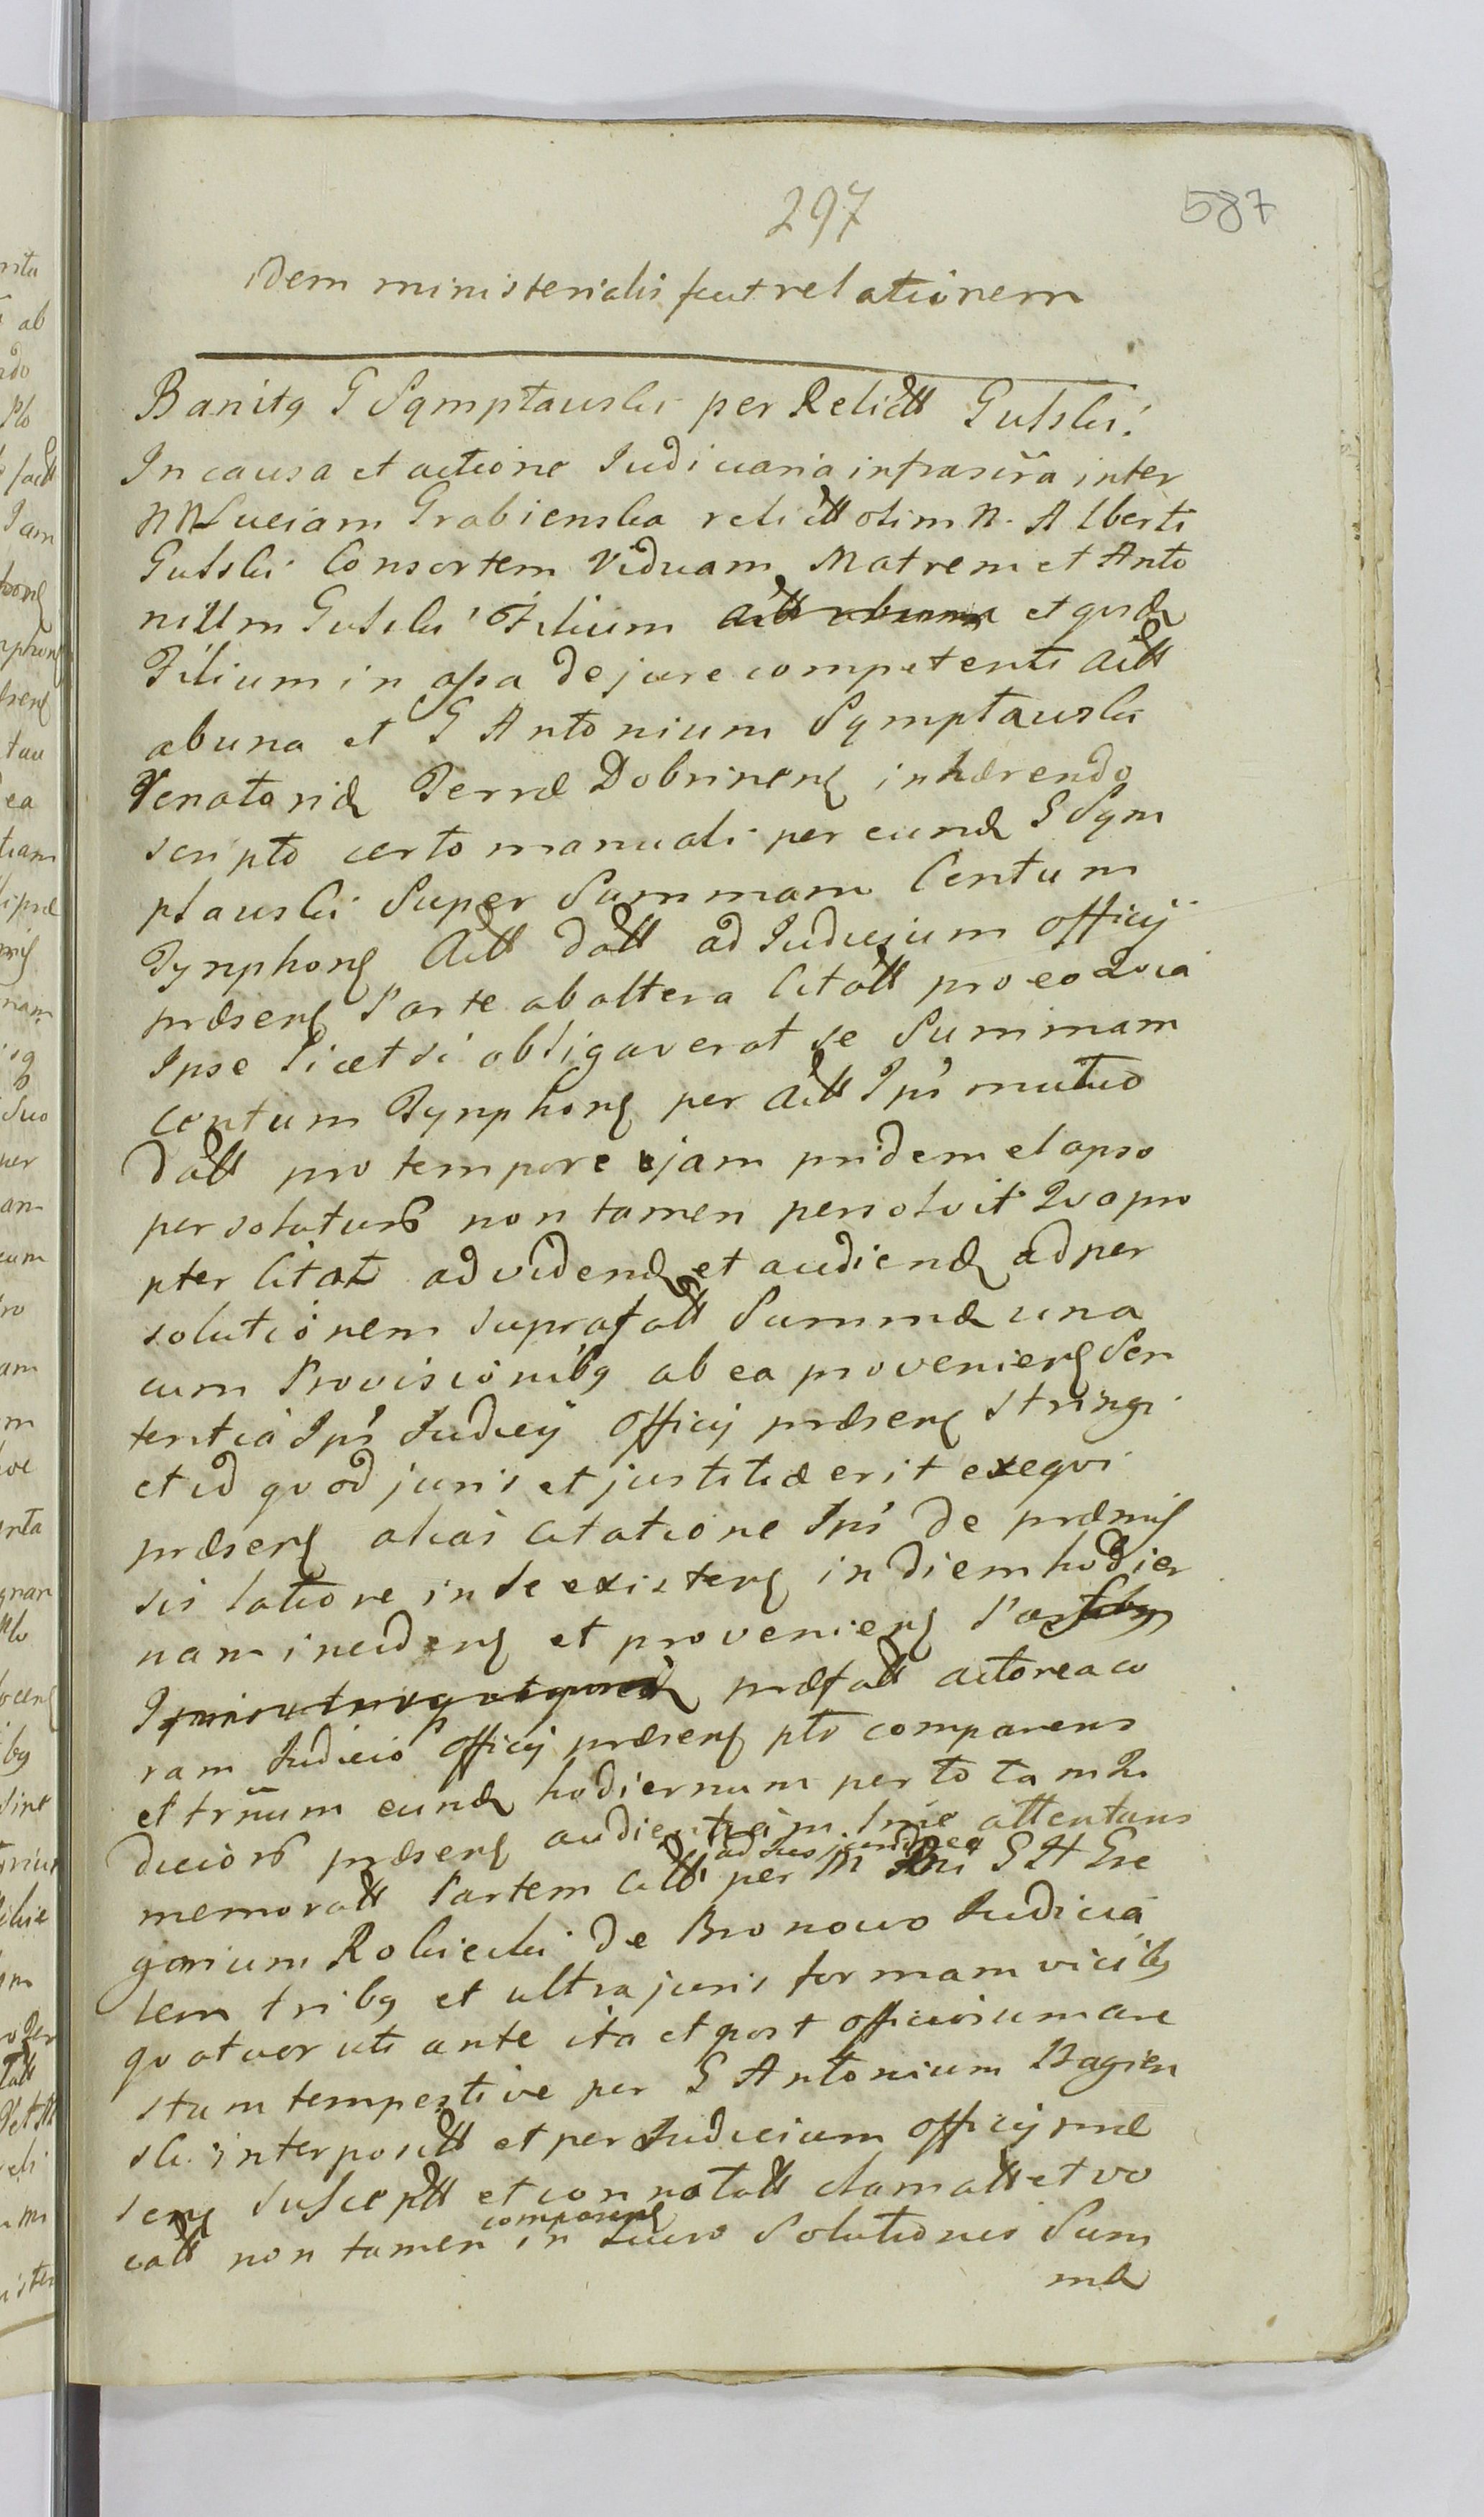 297
587
idem ministerialis fecit relationem
Banitq G Symptauski per Relictt Gutski.
In causa et actione Judiciaria infrascrā inter
NN Luciam Grabienska relictt olim N. Alberti
Gutski Consortem Viduam Matrem et Anto
nium Gutski Filium et
Filium in assa de jure competenti Actt
ab una et G Antonium Symptauski
Venatorid Terræ Dobrinens inhærendo
scripto certo manuali per eund G Sym
ptauski Super Summam Centum
Tynphons Actt datt ad Judicium officij
præsens Parte ab altera Citatt pro eo Quia
Ipse licet si obligaverat se Summam
Centum Tynphons per Actt Ipi mutuo
datt pro tempore jam pridem elapso
persoluturo non tamen persolvit Quopro
pter Citat ad videnđ et audienđ ad per
solutionem suprafatt Summæ una
cum Provisionibq ab ea provenienς Sen
tentia Ipi Judicij officij præsens stringi
et id quod juris et justitiæ erit exequi
præsens alias Citatione Ipi de præmis
sis latiore in se existens in diem hodier
nam incidens et proveniens
præfatt actorea co
ram Judicio officij præsens pto comparens
et trīnum eund hodiernum per totam Ju
dicioro præsens audientiam attentans
memoratt Partem Citt ad per M G H Gre
gorium Rokicki de Bronowo Judicia
lem tribq et ultra juris formam vicibq
quatuor uti ante ita et post officiosum are
stum tempestive per G Antonium Bagien
ski interpositt et per Judicium officij præ
sens Susceptt et connotatt clamatt et vo
catt non tamen comparens in Luero Solutionis Sum
mæ